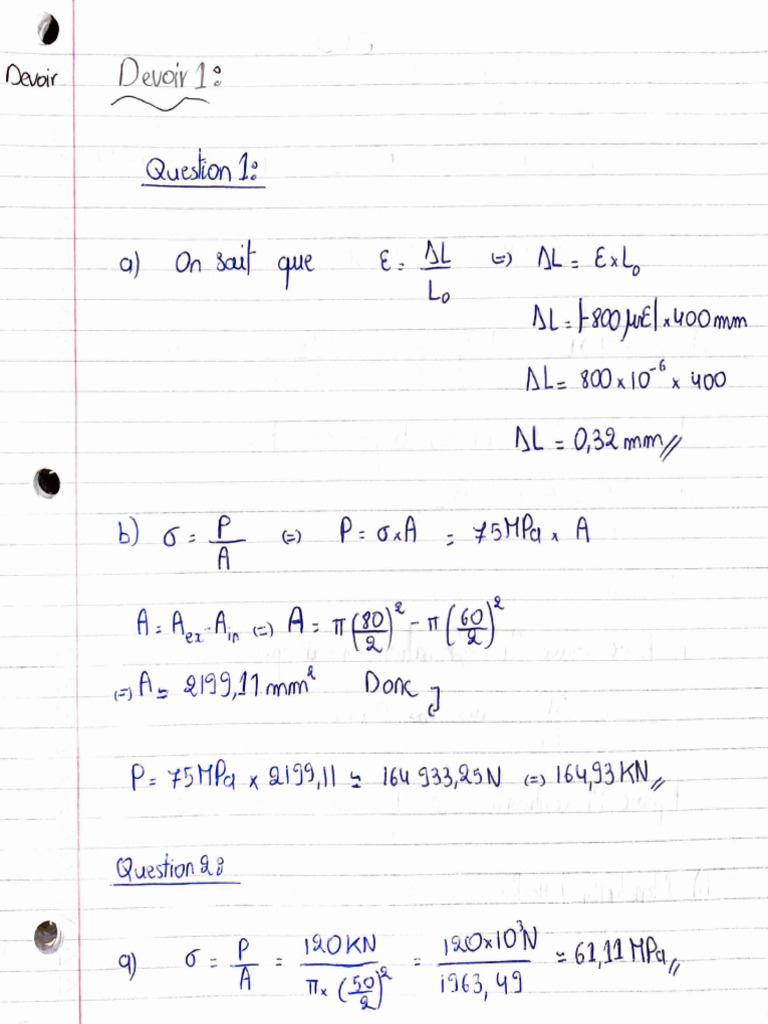 Devoir
Devoir 1:
Question 1:
a) On sait que ε = ΔL / L₀ (=) ΔL = ε × L₀
ΔL = |-800 με| × 400 mm
ΔL = 800 × 10⁻⁶ × 400
ΔL = 0,32 mm //
b) σ = P / A (=) P = σ × A = 75 MPa × A
A = A_ex - A_in (=) A = π (80/2)² - π (60/2)²
(=) A ≃ 2199,11 mm² Donc
P = 75 MPa × 2199,11 ≃ 164 933,25 N (=) 164,93 KN //
Question 2:
a) σ = P / A = 120 KN / π × (50/2)² = 120 × 10³ N / 1963,49 ≃ 61,11 MPa //